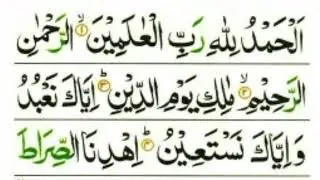 اَلْحَمْدُ لِلّٰهِ رَبِّ الْعٰلَمِيْنَ ۙ﴿۱﴾ الرَّحْمٰنِ
الرَّحِيْمِ ۙ﴿۲﴾ مٰلِكِ يَوْمِ الدِّيْنِ ؕ﴿۳﴾ اِيَّاكَ نَعْبُدُ
وَ اِيَّاكَ نَسْتَعِيْنُ ؕ﴿۴﴾ اِهْدِنَا الصِّرَاطَ